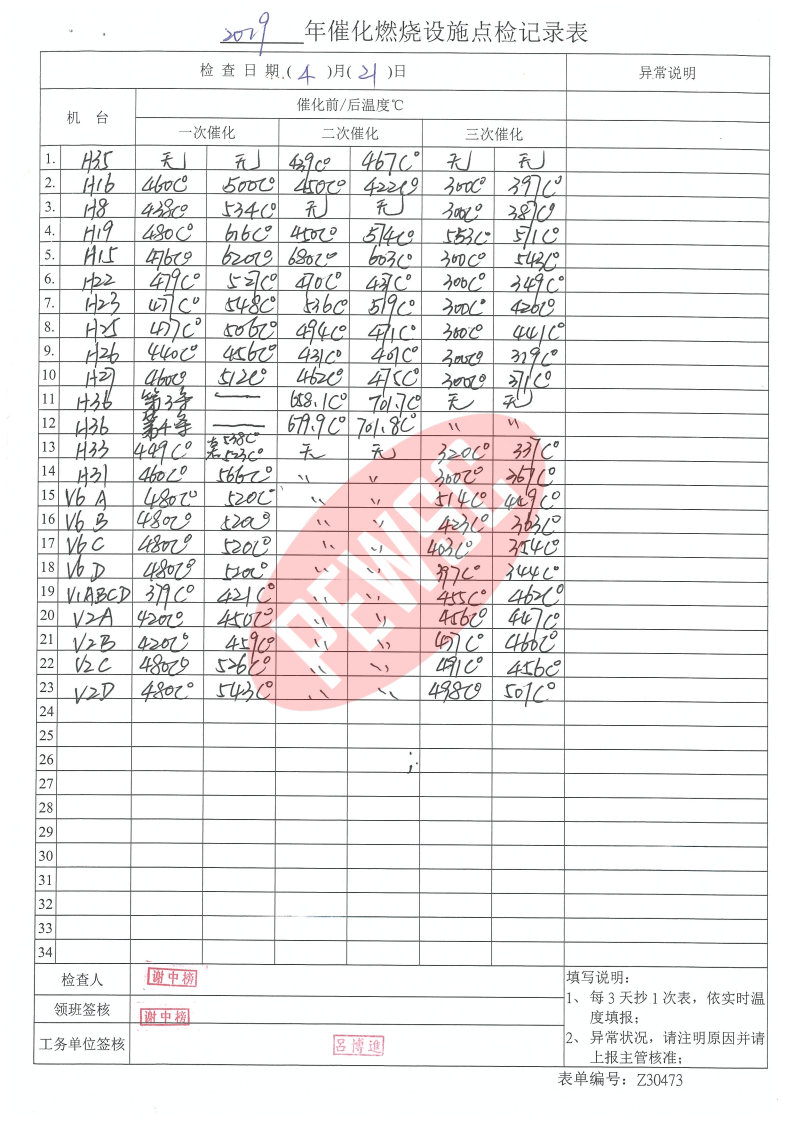 2019 年催化燃烧设施点检记录表
检 查 日 期.( 4 )月( 21 )日 异常说明
机 台 催化前/后温度℃
一次催化 二次催化 三次催化
1. H35 无 无 439C° 467C° 无 无
2. H16 460C° 500C° 450C° 422C° 300C° 397C°
3. H8 438C° 534C° 无 无 300C° 387C°
4. H19 480C° 616C° 450C° 574C° 553C° 571C°
5. H15 476C° 620C° 680C° 603C° 300C° 543C°
6. H22 479C° 527C° 470C° 437C° 300C° 349C°
7. H23 477C° 548C° 536C° 519C° 300C° 426C°
8. H25 477C° 506C° 494C° 471C° 300C° 441C°
9. H26 440C° 456C° 431C° 407C° 300C° 379C°
10 H27 460C° 512C° 462C° 475C° 300C° 371C°
11 H36 第3条 — 658.1C° 701.7C° 无 无
12 H36 第4条 — 679.9C° 701.8C° 〃 〃
13 H33 449C° 538C° 523C° 无 无 320C° 337C°
14 H31 460C° 566C° 〃 〃 300C° 367C°
15 V6 A 480C° 520C° 〃 〃 514C° 449C°
16 V6 B 480C° 520C° 〃 〃 423C° 363C°
17 V6 C 480C° 520C° 〃 〃 403C° 354C°
18 V6 D 480C° 520C° 〃 〃 397C° 344C°
19 V1ABCD 379C° 421C° 〃 〃 455C° 462C°
20 V2A 420C° 450C° 〃 〃 456C° 447C°
21 V2B 420C° 459C° 〃 〃 477C° 460C°
22 V2C 480C° 526C° 〃 〃 491C° 456C°
23 V2D 480C° 543C° 〃 〃 498C° 507C°
24
25
26
27
28
29
30
31
32
33
34
PEWSC
检查人 谢中榜
领班签核 谢中榜
工务单位签核 呂博進
填写说明:
1、 每 3 天抄 1 次表，依实时温
度填报；
2、 异常状况，请注明原因并请
上报主管核准；
表单编号：Z30473